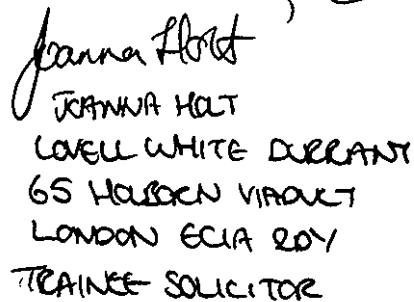 Joanna Holt
JOANNA HOLT
LOVELL WHITE DURRANT
65 HOLBORN VIADUCT
LONDON EC1A 2DY
TRAINEE SOLICITOR